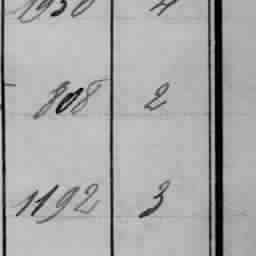 1950 4
808 2
1192 3